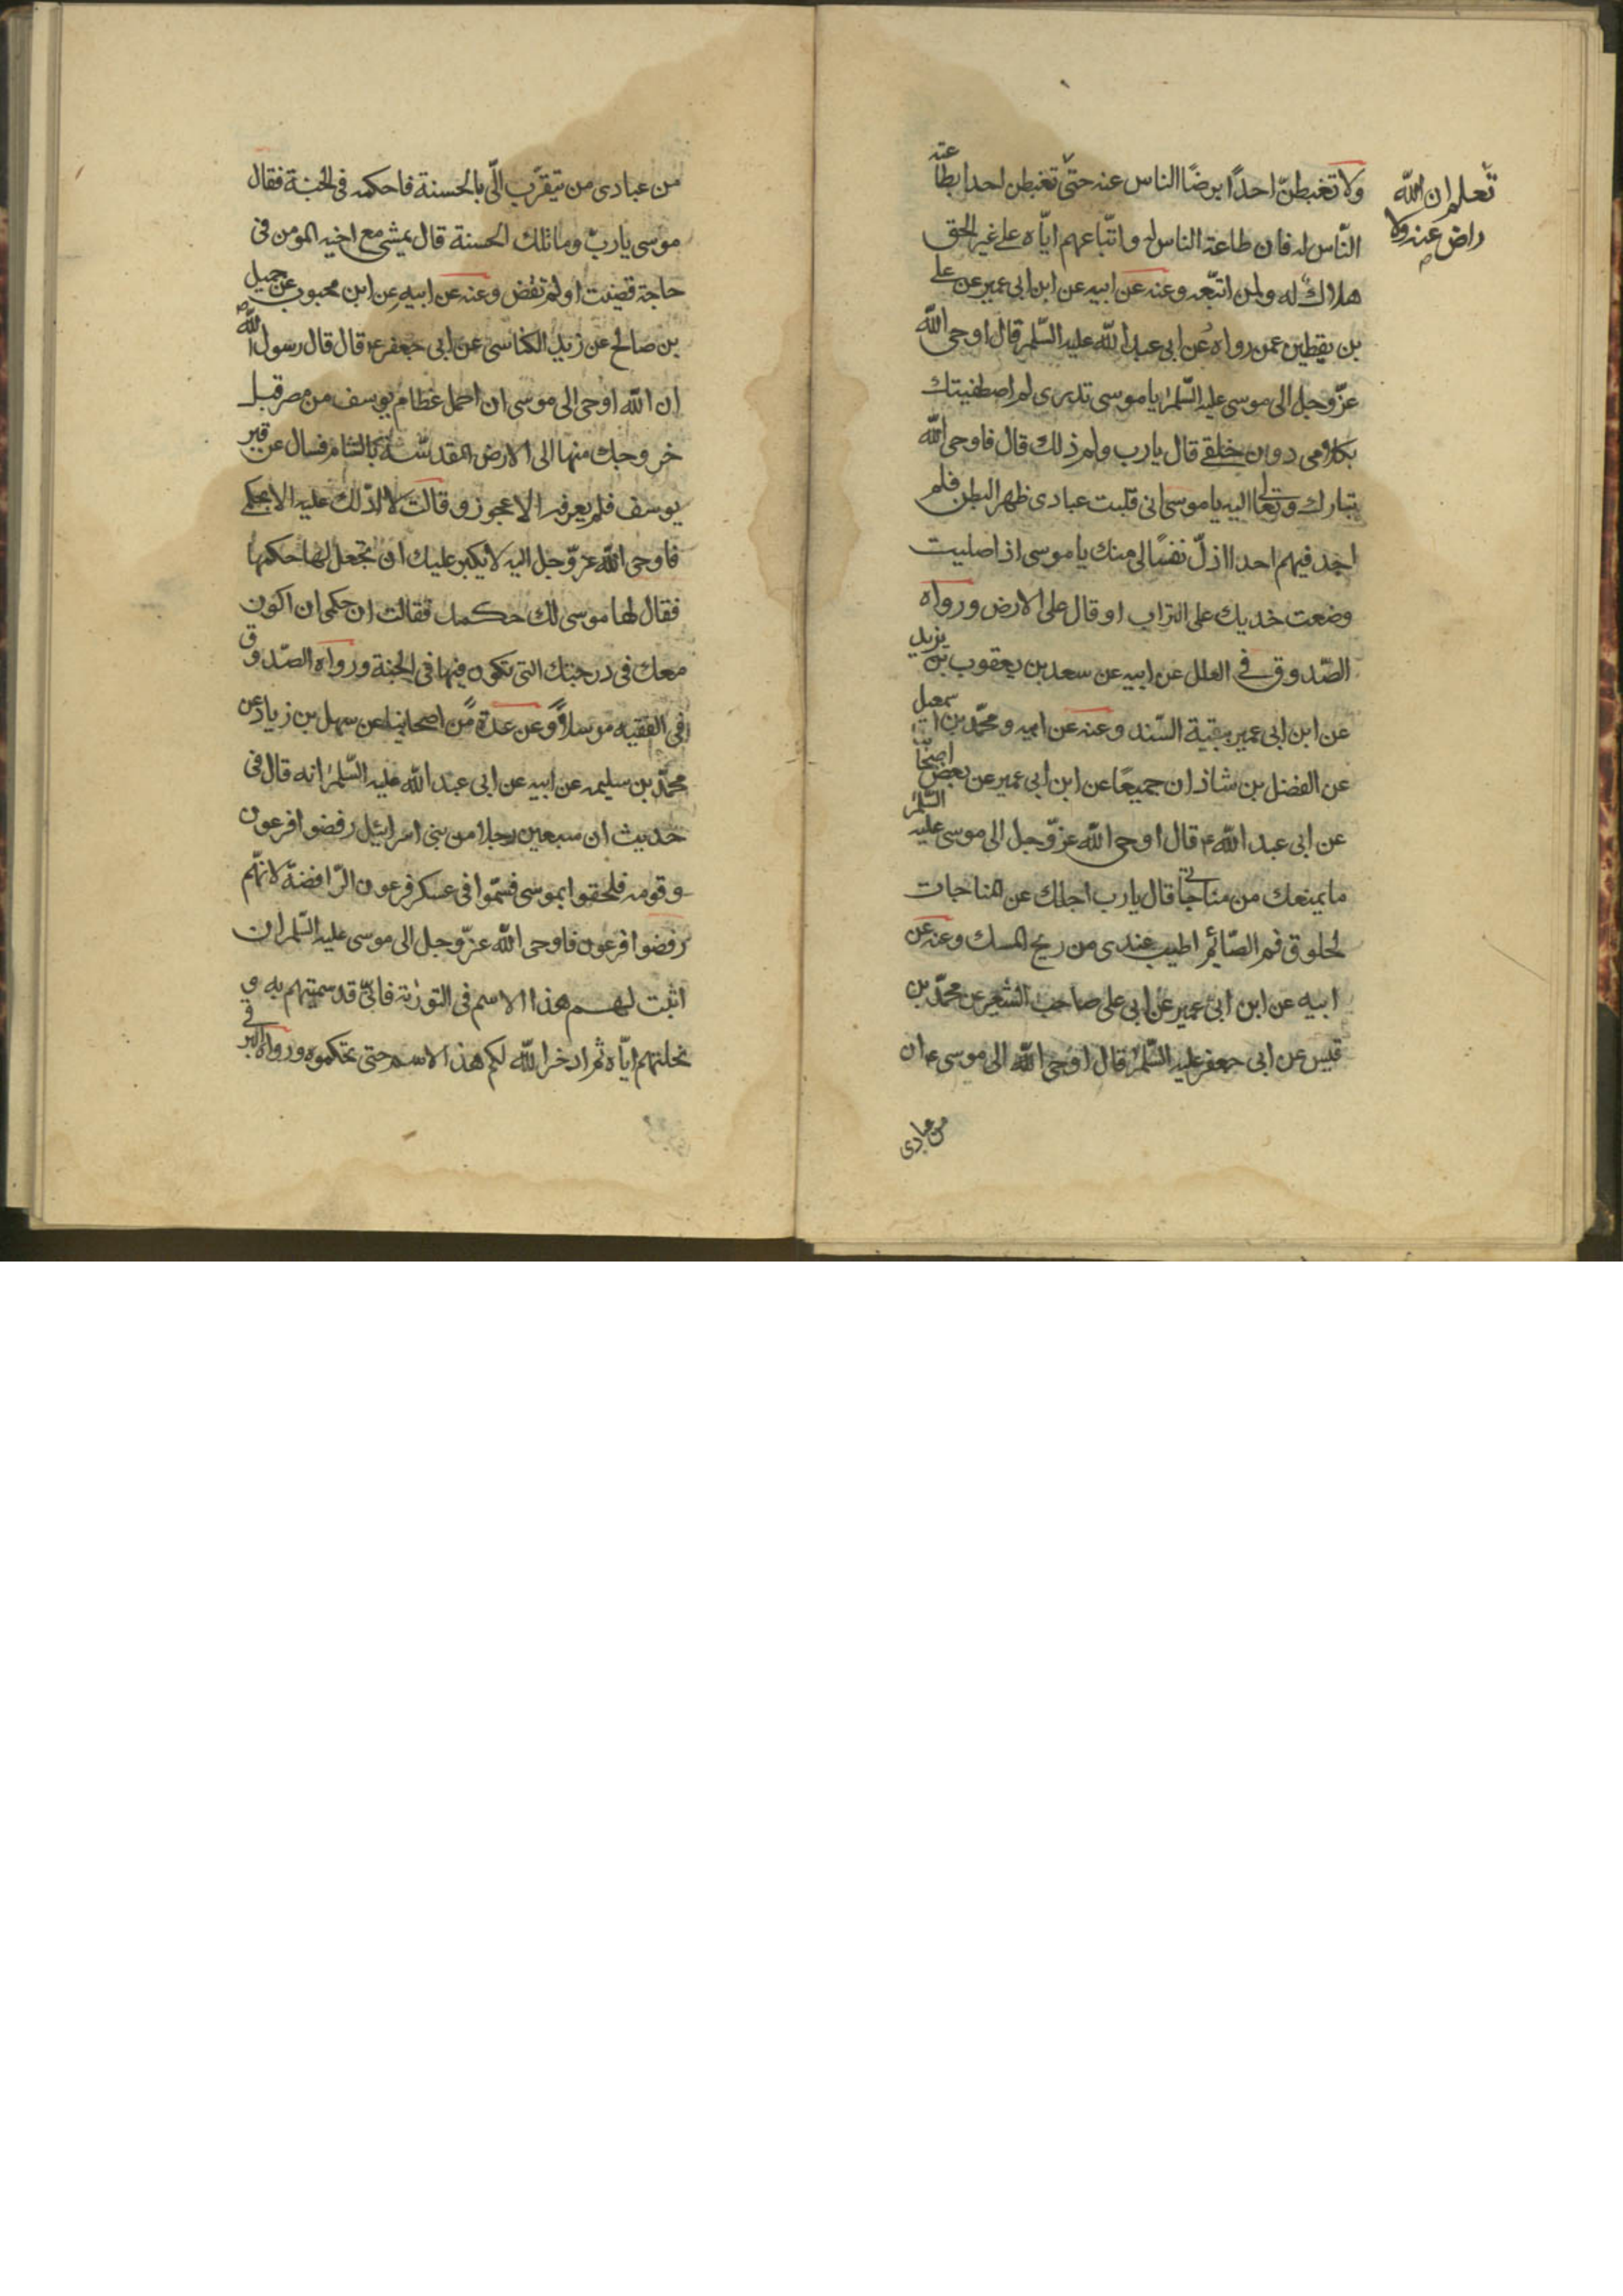 ولا تغبطنّ احدًا برضا الناس عنه حتّى تغبطن احدا بطاعة
تعلم ان الله
راض عنه ولا
النّاس له فان طاعة الناس له واتّباعهم ايّاه على غير الحق
هلاك له ولمن اتبّعه وعنه عن ابيه عن ابن ابى عمير عن على
بن يقطين عمن رواه عن ابى عبد الله عليه السّلم قال اوحى الله
عزّ وجل الى موسى عليه السّلم يا موسى تدرى لم اصطفيتك
بكلامى دون خلقى قال يا رب ولم ذلك قال فاوحى الله
تبارك وتعالى اليه يا موسى انى قلبت عبادى ظهر البطن فلم
اجد فيهم احدا اذلّ نفسًا لى منك يا موسى اذا صليت
وضعت خديك على التراب او قال على الارض ورواه
الصّدوق فى العلل عن ابيه عن سعد بن يعقوب بن يزيد
عن ابن ابى عمير ببقية السّند وعنه عن ابيه ومحمّد بن اسمعيل
عن الفضل بن شاذان جميعًا عن ابن ابى عمير عن بعض اصحابنا
عن ابى عبد الله ع قال اوحى الله عزّ وجل الى موسى عليه السّلم
ما يمنعك من مناجاتى قال يا رب اجلك عن المناجات
لخلوق فم الصّائم اطيب عندى من ريح المسك وعنه عن
ابيه عن ابن ابى عمير عن ابى على صاحب الشعير عن محمّد بن
قيس عن ابى جعفر عليه السّلم قال اوحى الله الى موسى ع ان
من عبادى
من عبادى من يتقرّب الىّ بالحسنة فاحكمه فى الجنة فقال
موسى يا ربّ وما تلك الحسنة قال يمشى مع اخيه المومن فى
حاجة قضيت او لم تقض وعنه عن ابيه عن ابن محبوب عن جميل
بن صالح عن زيد الكناسى عن ابى جعفر ع قال قال رسول الله ص
ان الله اوحى الى موسى ان احمل عظام يوسف من مصر قبل
خروجك منها الى الارض المقدسّة بالشام فسال عن قبر
يوسف فلم يعرفه الا عجوز وقالت لا ادّلك عليه الا بحكمى
فاوحى الله عزّ وجل اليه لا يكبر عليك ان تجعل لها حكمها
فقال لها موسى لك حكمك فقالت ان حكمى ان اكون
معك فى درجتك التى تكون فيها فى الجنة ورواه الصّدوق
فى الفقيه مرسلاً وعن عدة من اصحابنا عن سهل بن زياد عن
محمّد بن سليمن عن ابيه عن ابى عبد الله عليه السّلم انه قال فى
حديث ان سبعين رجلا من بنى اسرائيل رفضوا فرعون
وقومه فلحقوا بموسى فسمّوا فى عسكر فرعون الرّافضة لانهّم
رفضوا فرعون فاوحى الله عزّ وجل الى موسى عليه السّلم ان
اثبت لهم هذا الاسم فى التورية فانّى قد سميتهم به و
نحلتهم ايّاه ثم ادخر الله لكم هذا الاسم حتى نحلكموه ورواه البرقى فى